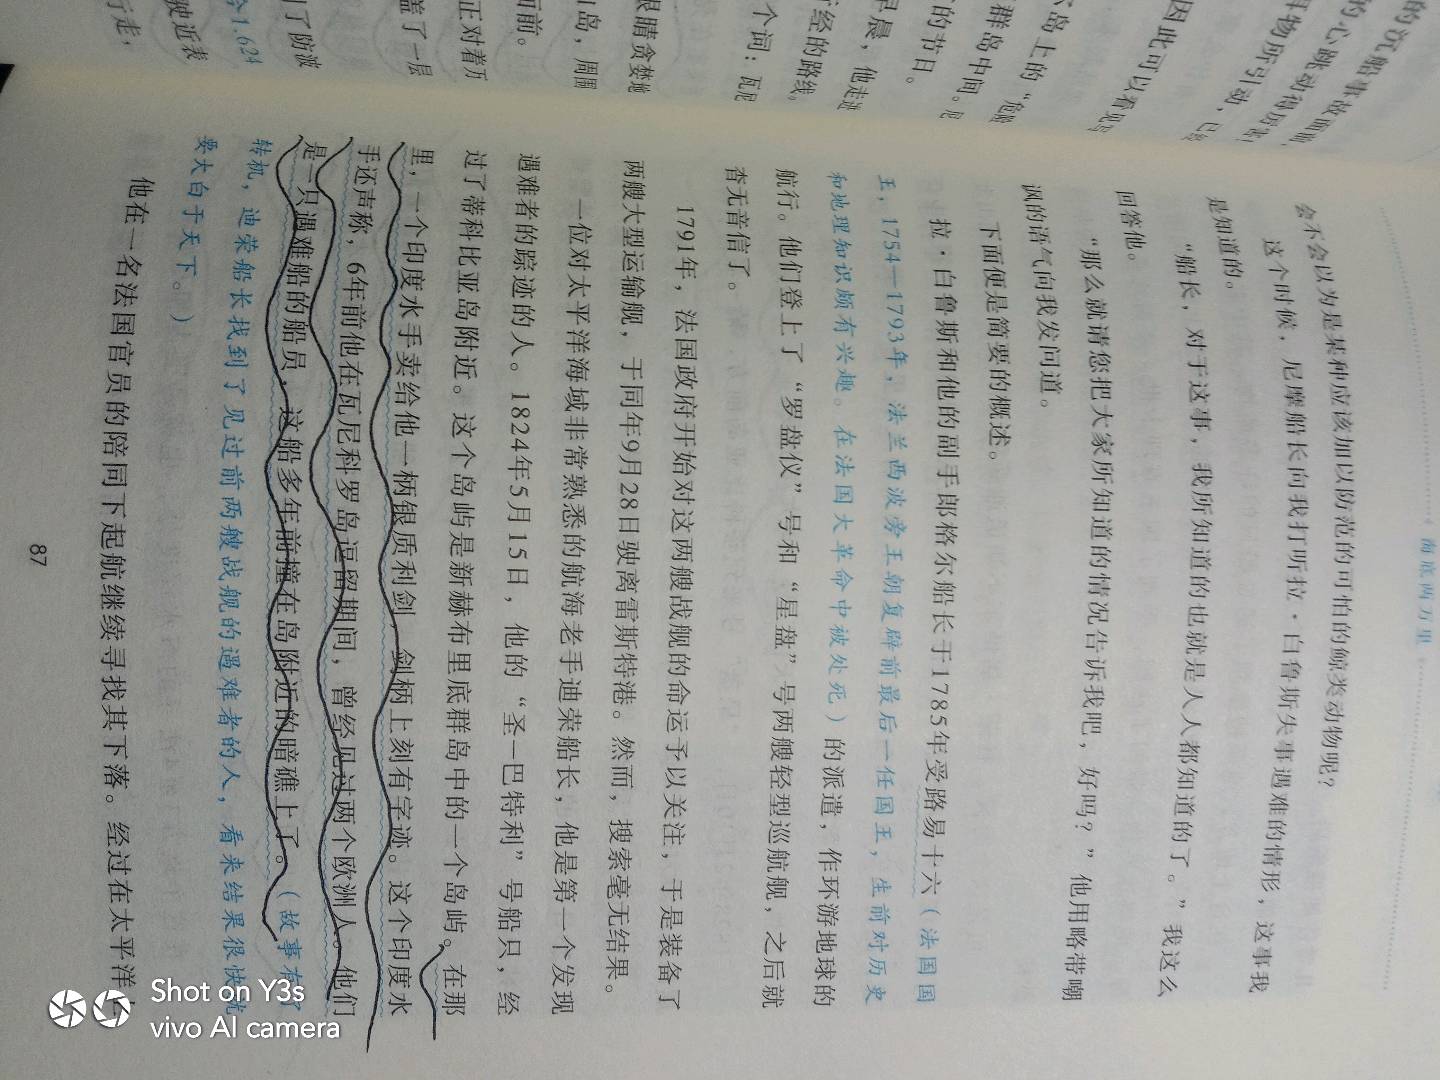 海底两万里
会不会以为是某种应该加以防范的可怕的鲸类动物呢？
这个时候，尼摩船长向我打听拉·白鲁斯失事遇难的情形，这事我
是知道的。
“船长，对于这事，我所知道的也就是人人都知道的了。”我这么
回答他。
“那么就请您把大家所知道的情况告诉我吧，好吗？”他用略带嘲
讽的语气向我发问道。
下面便是简要的概述。
拉·白鲁斯和他的副手郎格尔船长于1785年受路易十六（法国国
王，1754—1793年，法兰西波旁王朝复辟前最后一任国王，生前对历史
和地理知识颇有兴趣。在法国大革命中被处死）的派遣，作环游地球的
航行。他们登上了“罗盘仪”号和“星盘”号两艘轻型巡航舰，之后就
杳无音信了。
1791年，法国政府开始对这两艘战舰的命运予以关注，于是装备了
两艘大型运输舰，于同年9月28日驶离雷斯特港。然而，搜索毫无结果。
一位对太平洋海域非常熟悉的航海老手迪荣船长，他是第一个发现
遇难者的踪迹的人。1824年5月15日，他的“圣－巴特利”号船只，经
过了蒂科比亚岛附近。这个岛屿是新赫布里底群岛中的一个岛屿。在那
里，一个印度水手卖给他一柄银质利剑，剑柄上刻有字迹。这个印度水
手还声称，6年前他在瓦尼科罗岛逗留期间，曾经见过两个欧洲人。他们
是一只遇难船的船员，这船多年前撞在岛附近的暗礁上了。（故事有了
转机，迪荣船长找到了见过前两艘战舰的遇难者的人，看来结果很快就
要大白于天下。）
他在一名法国官员的陪同下起航继续寻找其下落。经过在太平洋上
87
的沉船事故面前，
的心跳动得厉害！
事物所引动，已经
因此可以看见与
岛上的“危险
群岛中间。
的节日。
早晨，他走进
经的路线。
个词：瓦尼
眼睛贪婪地
岛，周围
面前。
正对着开
盖了一层
了防波
合1.624
驶近表
行走，
Shot on Y3s
vivo AI camera